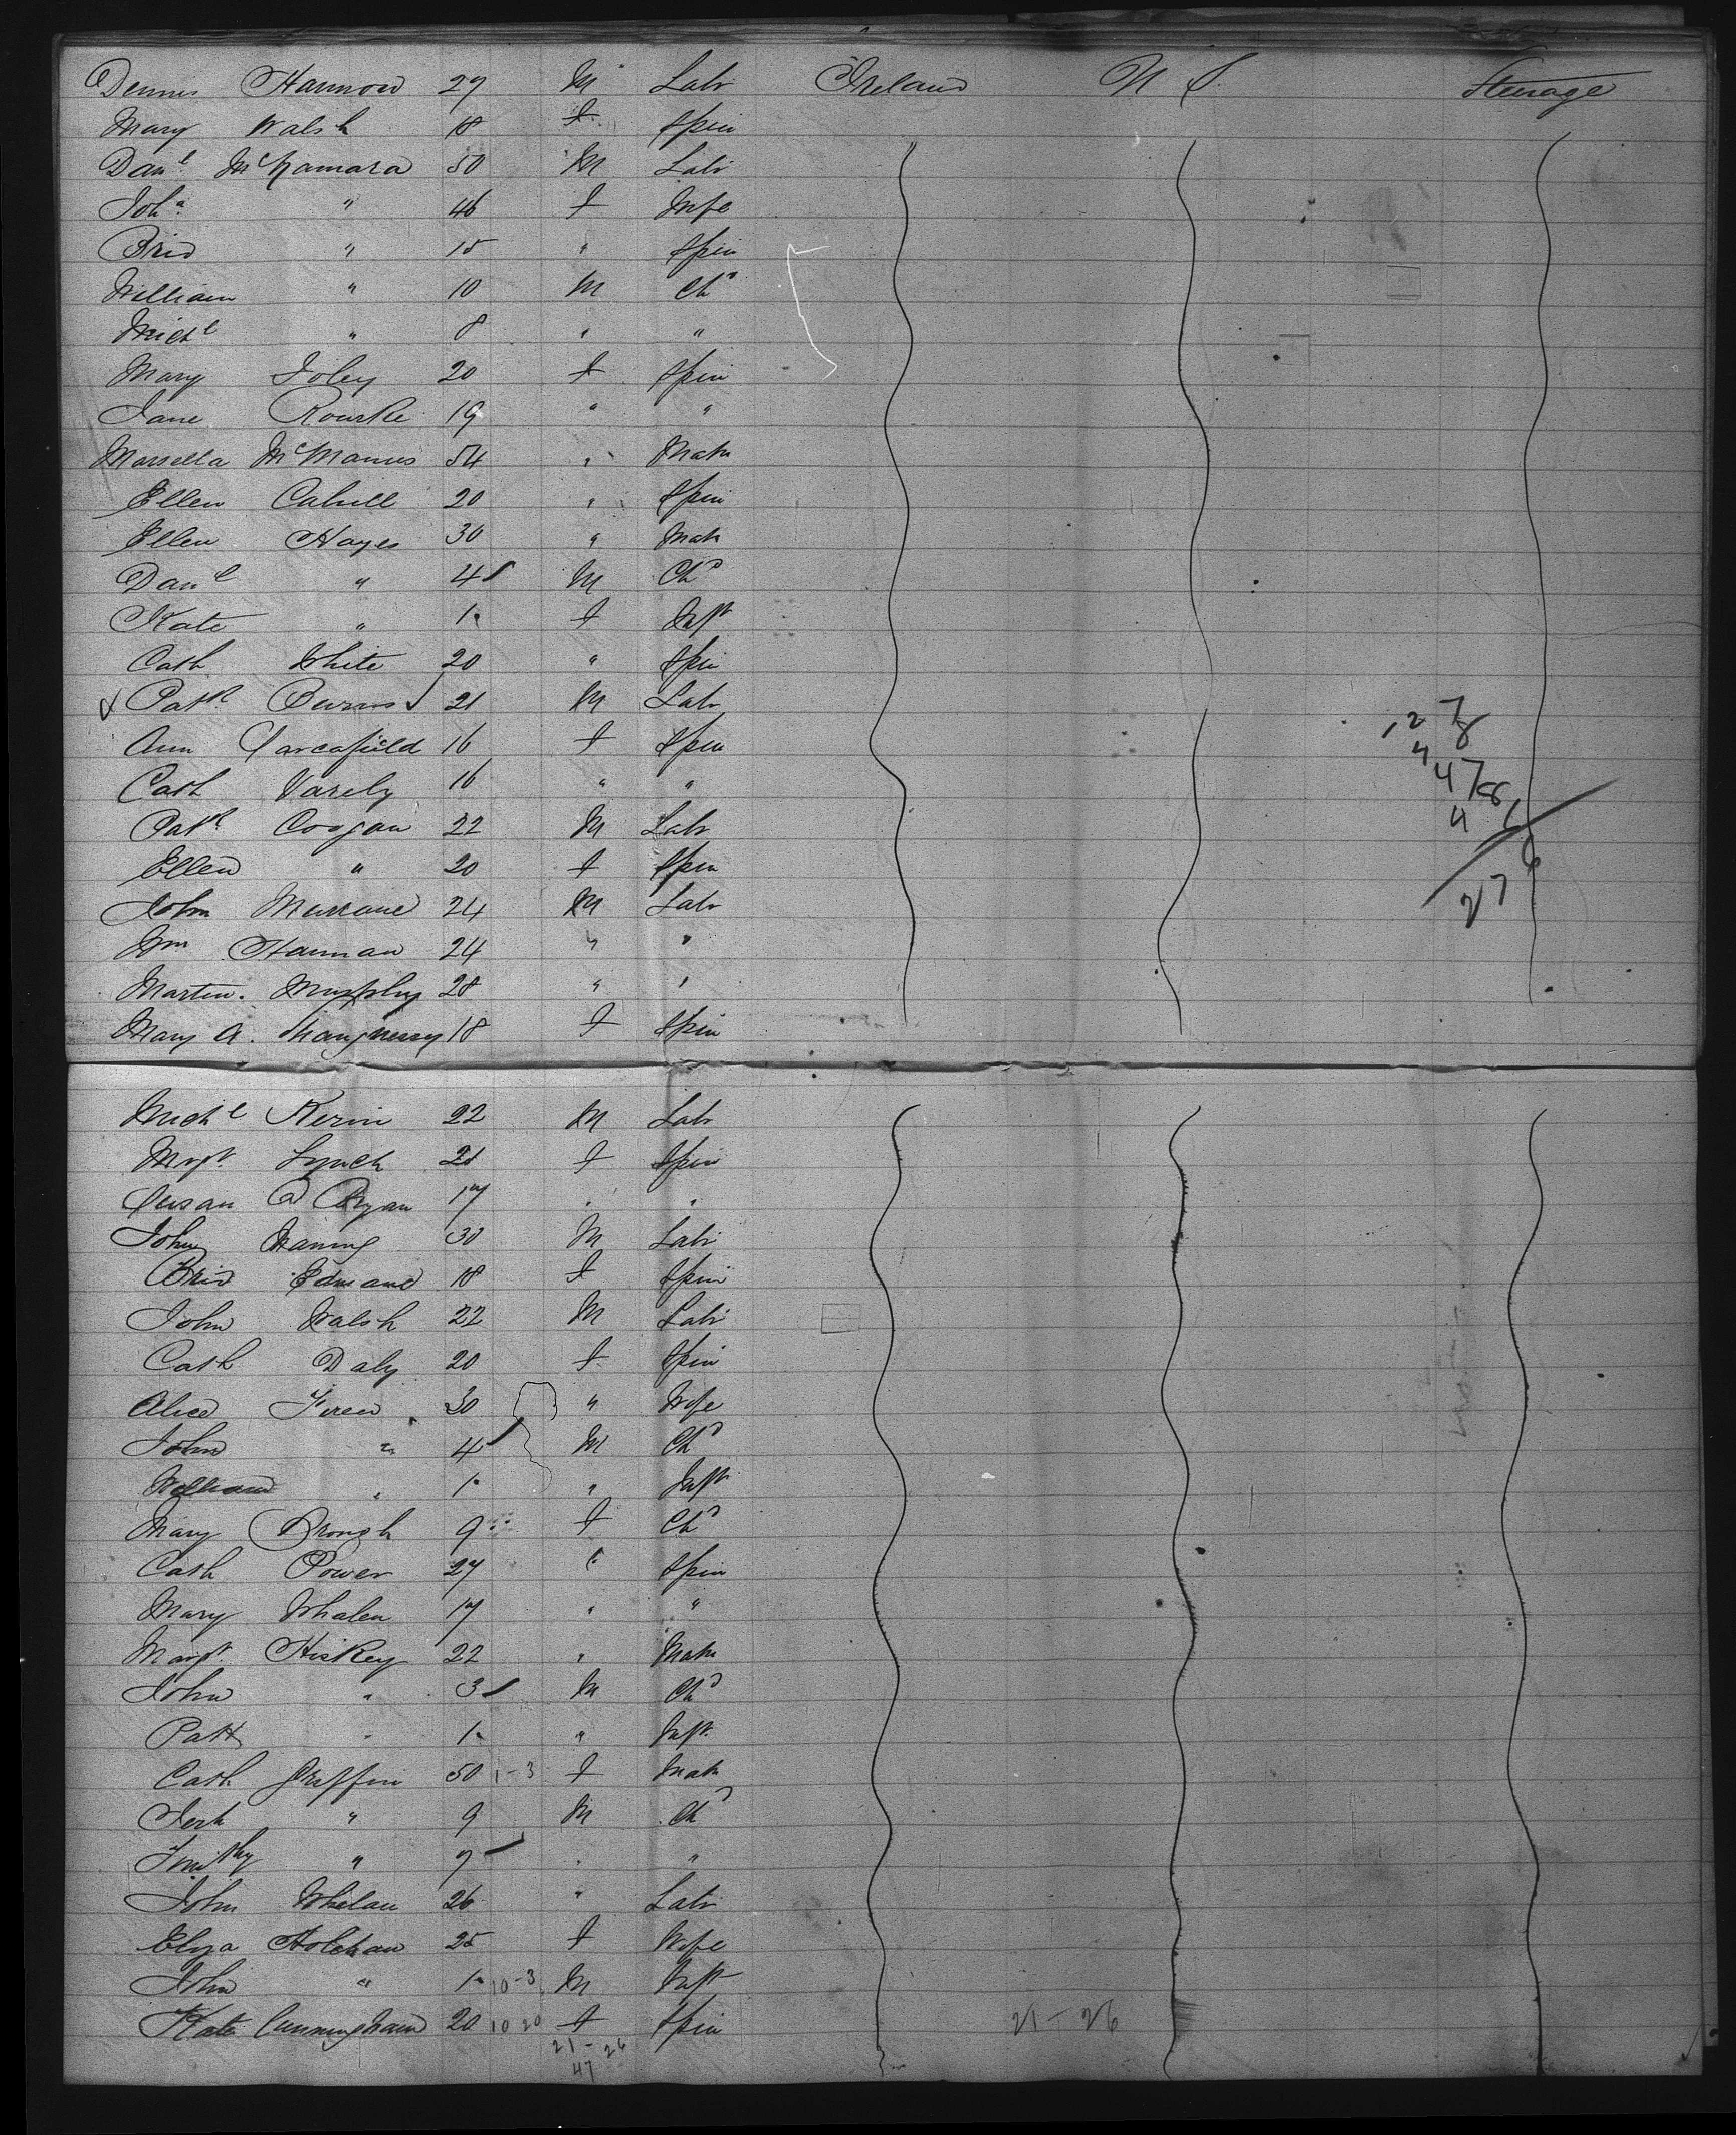 Dennis Hannon 27 M Labr Ireland U S Steerage
Mary Walsh 18 F Spin
Danl McNamara 50 M Labr
Joha " 46 F Wife
Brid " 15 " Spin
William " 10 M Chd
Michl " 8 " "
Mary Foley 20 F Spin
Jane Rourke 19 " "
Marsella McManus 54 " Matn
Ellen Cahill 20 " Spin
Ellen Hayes 30 " Matn
Danl " 4 M Chd
Kate " 1 F Inft
Cath White 20 " Spin
Patk Burns 21 M Labr
Ann 16 F Spin
Cath Varely 16 " "
Patk Coogan 22 M Labr
Ellen " 20 F Spin
John 24 M Labr
Wm Hannan 24 " "
Martin Murphy 28 " "
Mary A. Shaughnessy 18 F Spin
27
Michl Kerin 22 M Labr
Mgt Lynch 21 F Spin
Susan Ryan 17 " "
John 30 M Labr
Brid Edmand 18 F Spin
John Walsh 22 M Labr
Cath Daly 20 F Spin
Alice 30 " Wife
John " 4 M Chd
William " 1 " Inft
Mary Brough 9 F Chd
Cath Power 27 " Spin
Mary Whalen 17 " "
Margt Hiskey 22 " Matn
John " 3 M Chd
Patk " 1 " Inft
Cath Griffin 50 1-3 F Matn
Jerh " 9 M Chd
Timothy " 7 " "
John Whelan 26 " Labr
Eliza Holehan 25 F Wife
John " 1 10-3 M Inft
Kate Cunningham 20 10 20 F Spin 21-26
21-26
47